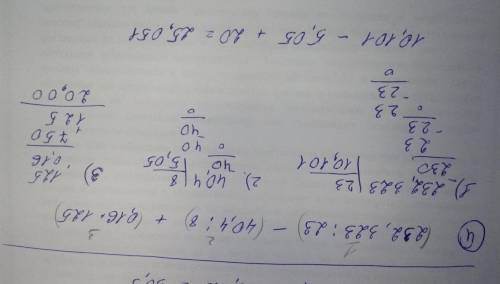 1 2 3
④ (232,323 : 23) − (40,4 : 8) + (0,16 · 125)
1) 232,323 | 23
230 10,101
23
23
0
23
23
0
2) 40,4 | 8
40 5,05
0
40
40
0
3) 125
0,16
750
125
20,00
10,101 − 5,05 + 20 = 25,051